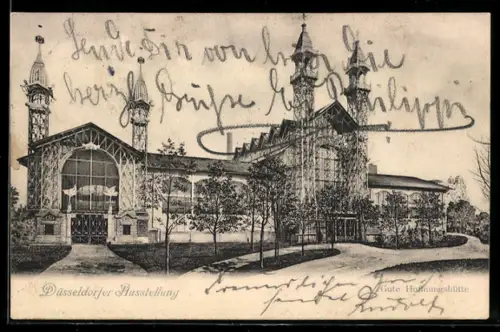 Sende Dir von hier die
herzl. Grüße E. Philippi
Düsseldorfer Ausstellung
Gute Hoffnungshütte
Rudolf